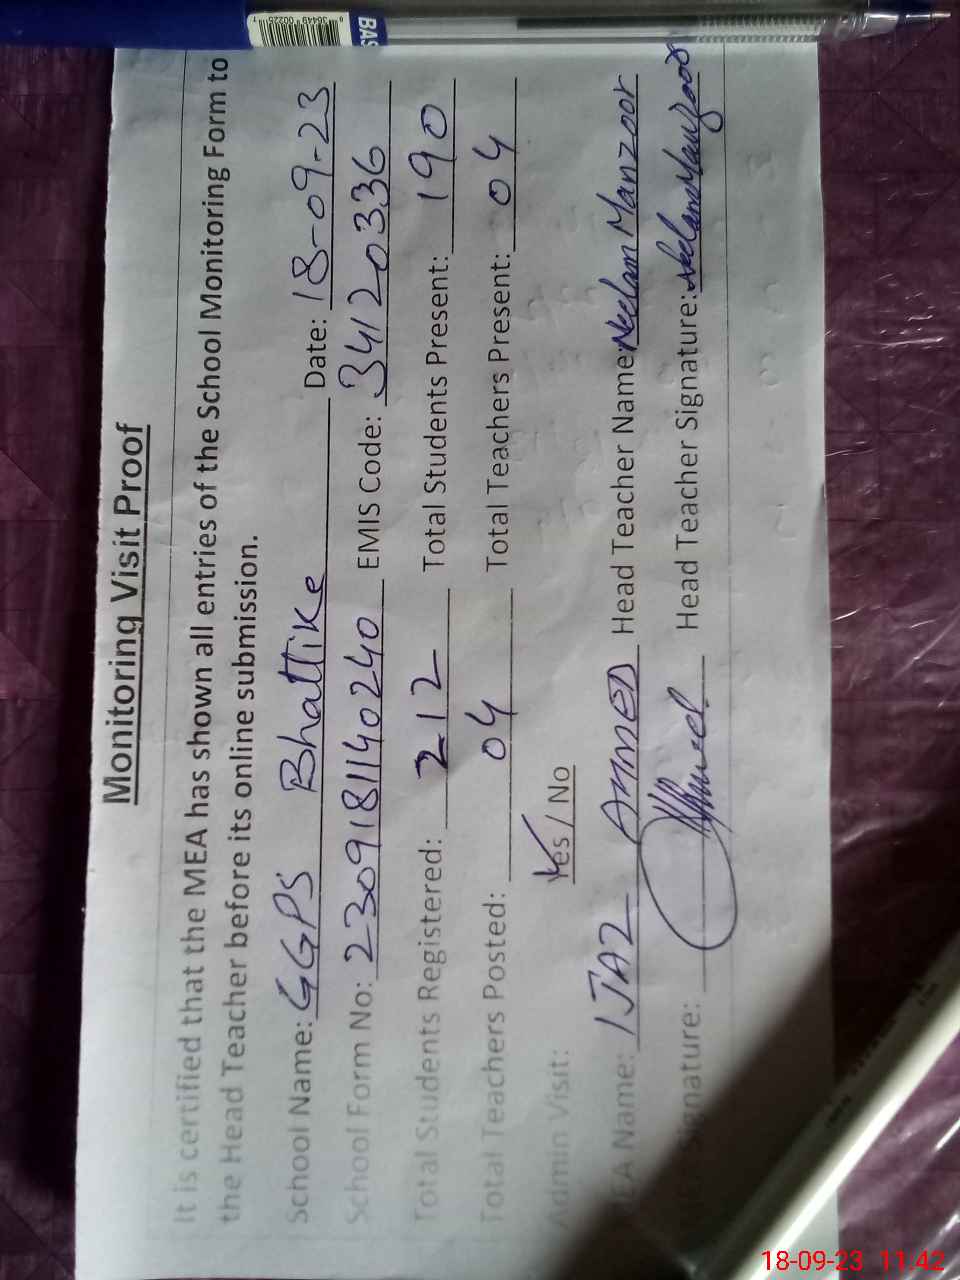 Monitoring Visit Proof
It is certified that the MEA has shown all entries of the School Monitoring Form to
the Head Teacher before its online submission.
School Name: GGPS Bhattike Date: 18-09-23
School Form No: 2309181140240 EMIS Code: 34120336
Total Students Registered: 212 Total Students Present: 190
Total Teachers Posted: 04 Total Teachers Present: 04
Admin Visit: Yes / No
MEA Name: IJAZ AHMED Head Teacher Name: Neelam Manzoor
Signature: Ahmed Head Teacher Signature: Neelam Manzoor
BAS
9 36449 00225 7
18-09-23 11:42